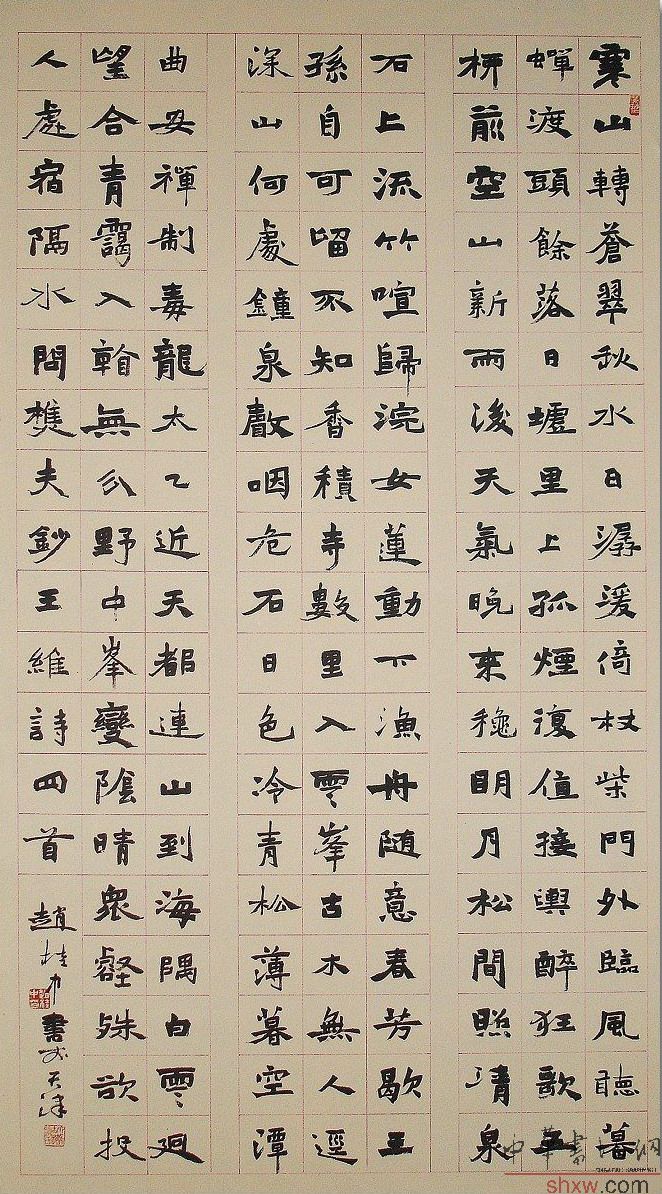 寒山轉蒼翠秋水日潺湲倚杖柴門外臨風聽暮
蟬渡頭餘落日墟里上孤煙復值接輿醉狂歌五
柳前空山新雨後天氣晚來穐明月松間照清泉
石上流竹喧歸浣女蓮動下漁舟随意春芳歇王
孫自可留不知香積寺數里入雲峯古木無人逕
深山何處鐘泉聲咽危石日色冷青松薄暮空潭
曲安禪制毒龍太乙近天都連山到海隅白雲迴
望合青靄入看無分野中峯變陰晴衆壑殊欲投
人處宿隔水問樵夫鈔王維詩四首趙桂書於天津
中華書法網
shxw.com